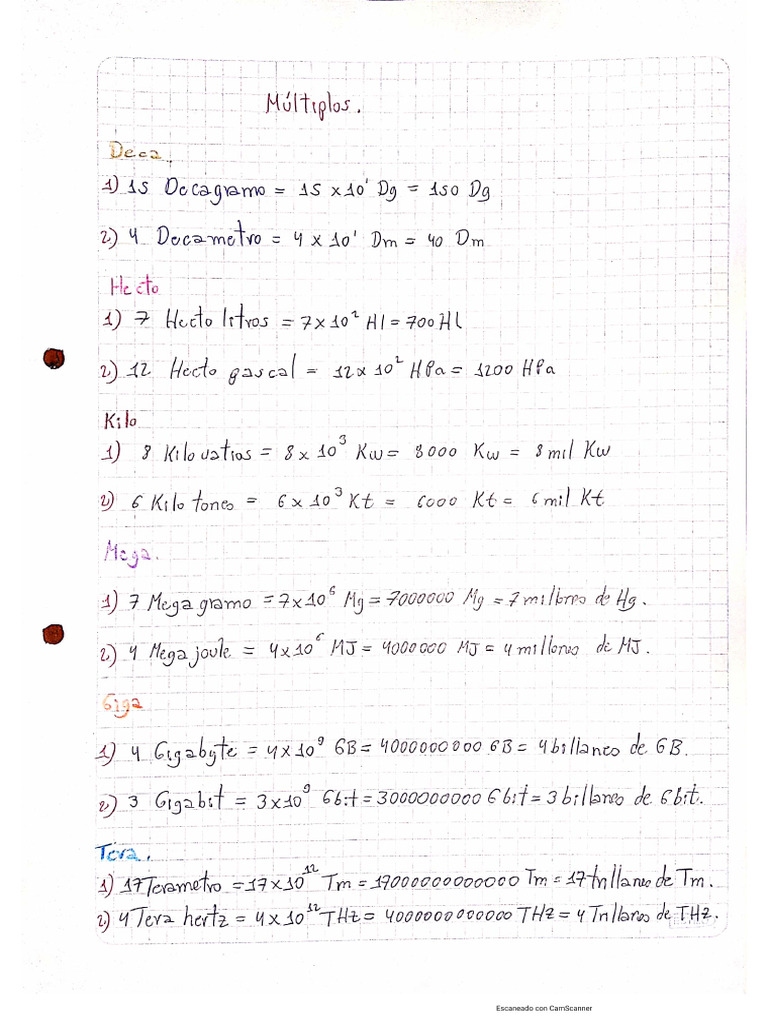 Múltiplos.
Deca.
1) 15 Decagramo = 15 x 10¹ Dg = 150 Dg
2) 4 Decametro = 4 x 10¹ Dm = 40 Dm
Hecto
1) 7 Hecto litros = 7 x 10² Hl = 700 Hl
2) 12 Hecto gascal = 12 x 10² HPa = 1200 HPa
Kilo
1) 8 Kilovatios = 8 x 10³ Kw = 8000 Kw = 8 mil Kw
2) 6 Kilo tones = 6 x 10³ Kt = 6000 Kt = 6 mil Kt
Mega.
1) 7 Mega gramo = 7 x 10⁶ Mg = 7000000 Mg = 7 millones de Hg.
2) 4 Mega joule = 4 x 10⁶ MJ = 4000000 MJ = 4 millones de MJ.
Giga
1) 4 Gigabyte = 4 x 10⁹ GB = 4000000000 GB = 4 billones de GB.
2) 3 Gigabit = 3 x 10⁹ Gbit = 3000000000 Gbit = 3 billones de Gbit.
Tera.
1) 17 Terametro = 17 x 10¹² Tm = 17000000000000 Tm = 17 trillones de Tm.
2) 4 Tera hertz = 4 x 10¹² THz = 4000000000000 THz = 4 Trillones de THz.
Escaneado con CamScanner